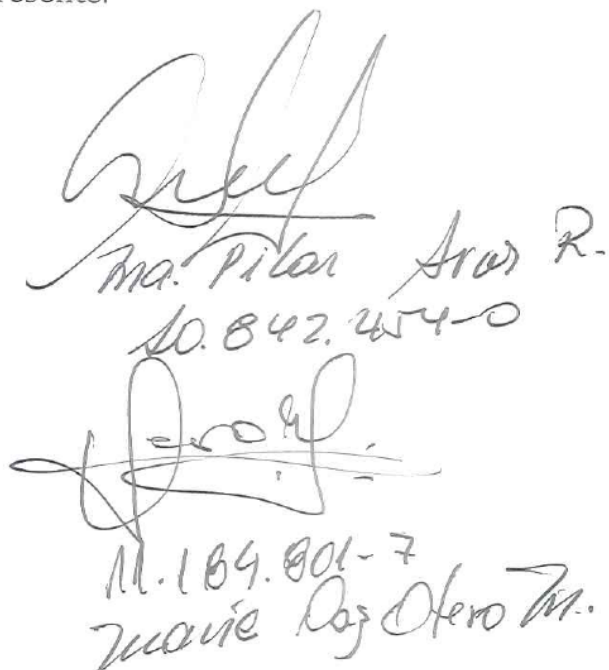 resente.
Ma. Pilar Aros R.
10.842.454-0
11.184.801-7
Marie Paz Otero M.